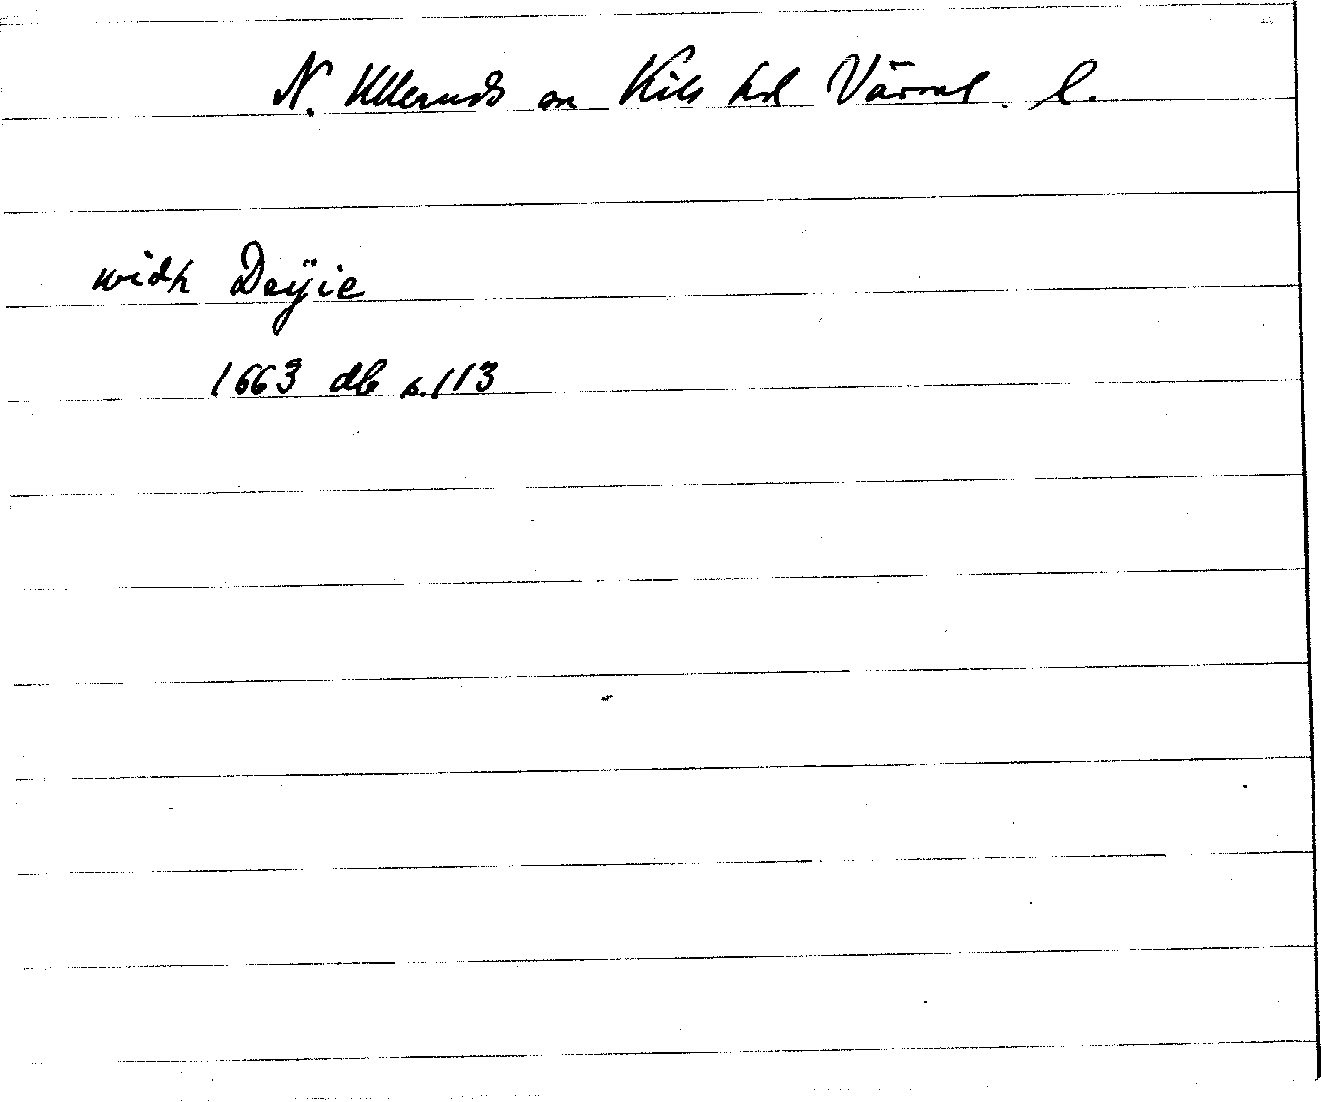 N. Ulleruds sn Kils hd Värml. l.
widh Deÿie
1663 db s. 113